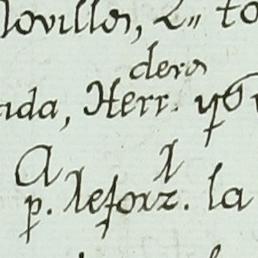 Novillos, 2,, to
deros
ada, Herr. y
A l
p. lesorz. la